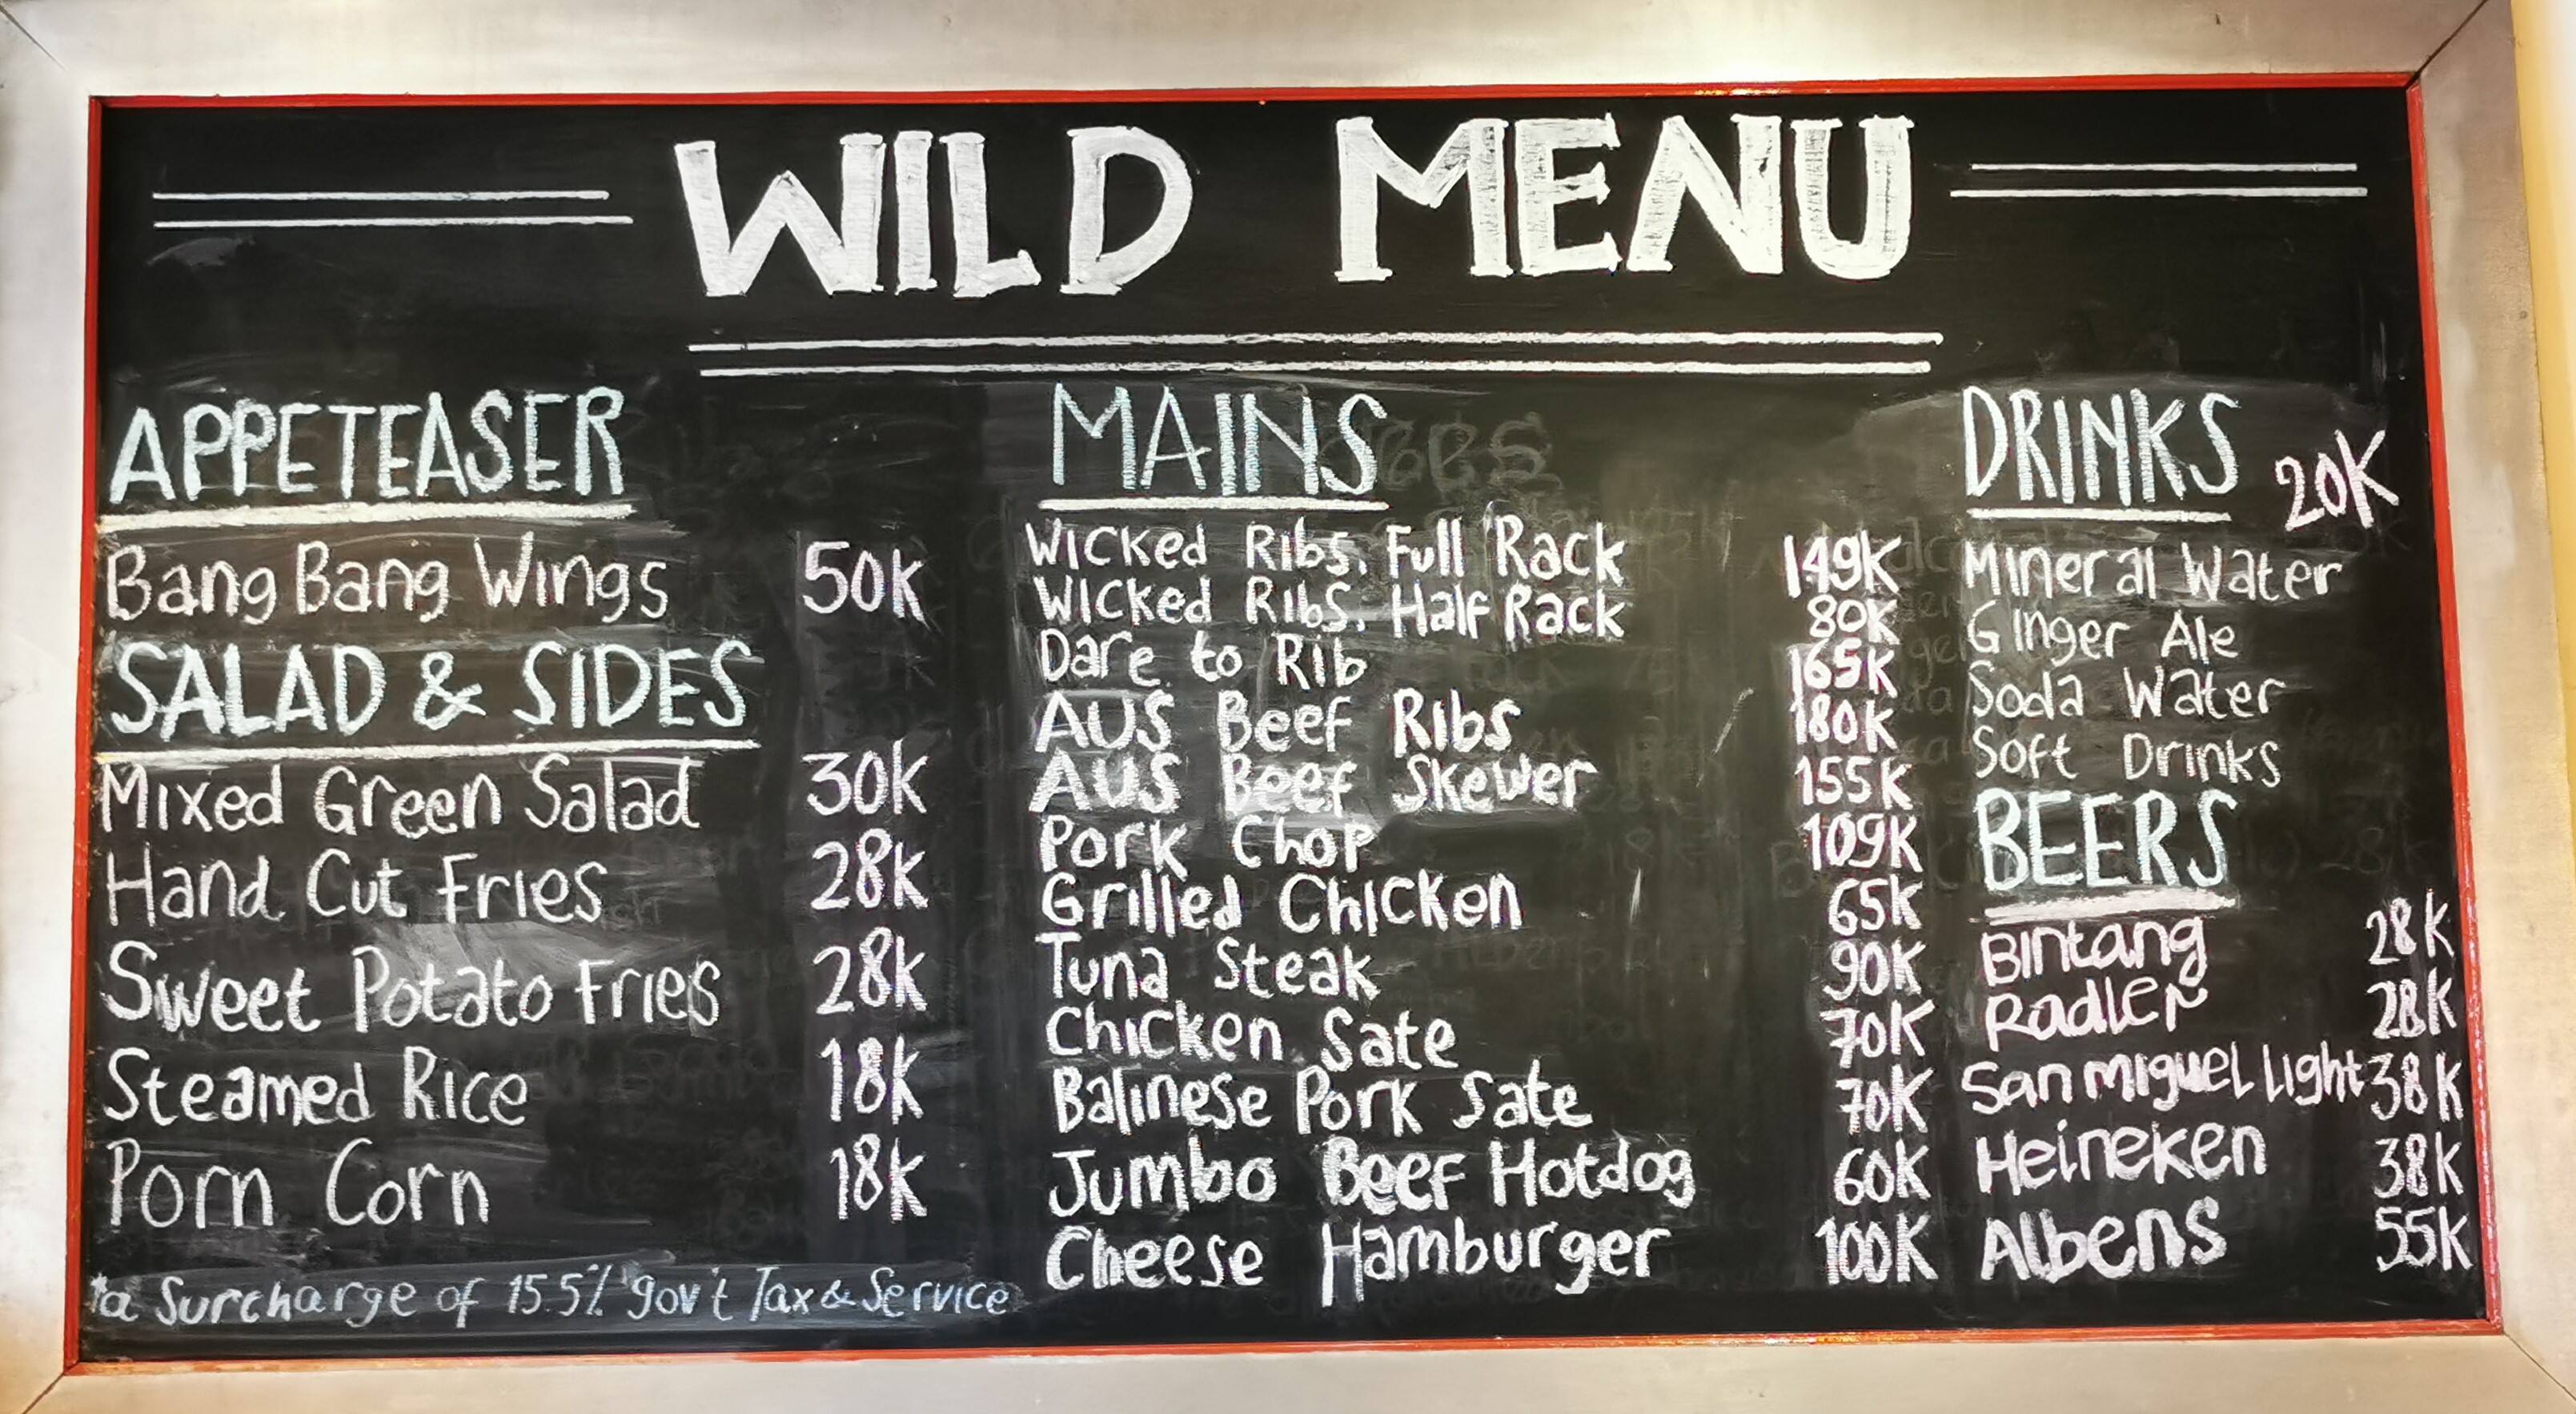 WILD MENU
APPETEASER
Bang Bang Wings 50K
SALAD & SIDES
Mixed Green Salad 30K
Hand Cut Fries 28K
Sweet Potato Fries 28K
Steamed Rice 18K
Porn Corn 18K
*a Surcharge of 15.5% gov't Tax & Service
MAINS
Wicked Ribs. Full Rack 149K
Wicked Ribs. Half Rack 80K
Dare to Rib 165K
AUS Beef Ribs 180K
AUS Beef Skewer 155K
Pork Chop 109K
Grilled Chicken 65K
Tuna Steak 90K
Chicken Sate 70K
Balinese Pork Sate 70K
Jumbo Beef Hotdog 60K
Cheese Hamburger 100K
DRINKS 20K
Mineral Water
Ginger Ale
Soda Water
Soft Drinks
BEERS
Bintang 28K
Radler 28K
San Miguel Light 38K
Heineken 38K
Albens 55K